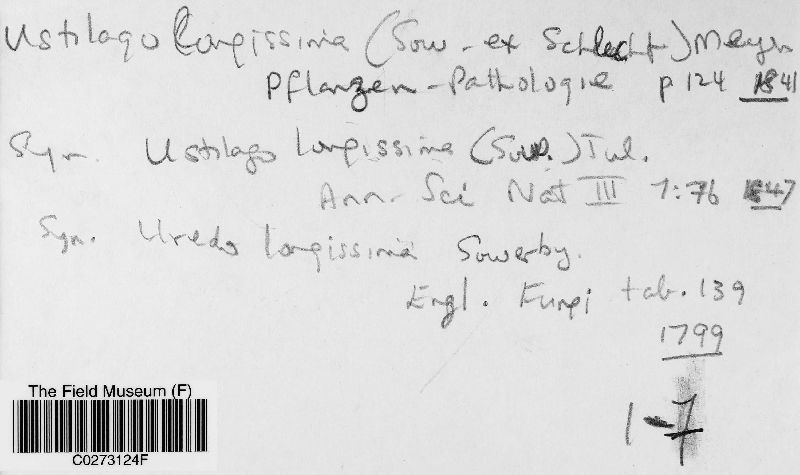 Ustilago longissima (Sow. ex Schlecht) Meyen
Pflanzen-Pathologie p 124 1841
Syn. Ustilago longissima (Sow.) Tul.
Ann. Sci Nat III 7:76 1847
Syn. Uredo longissima Sowerby.
Engl. Fungi tab. 139
1799
1-7
The Field Museum (F)
C0273124F